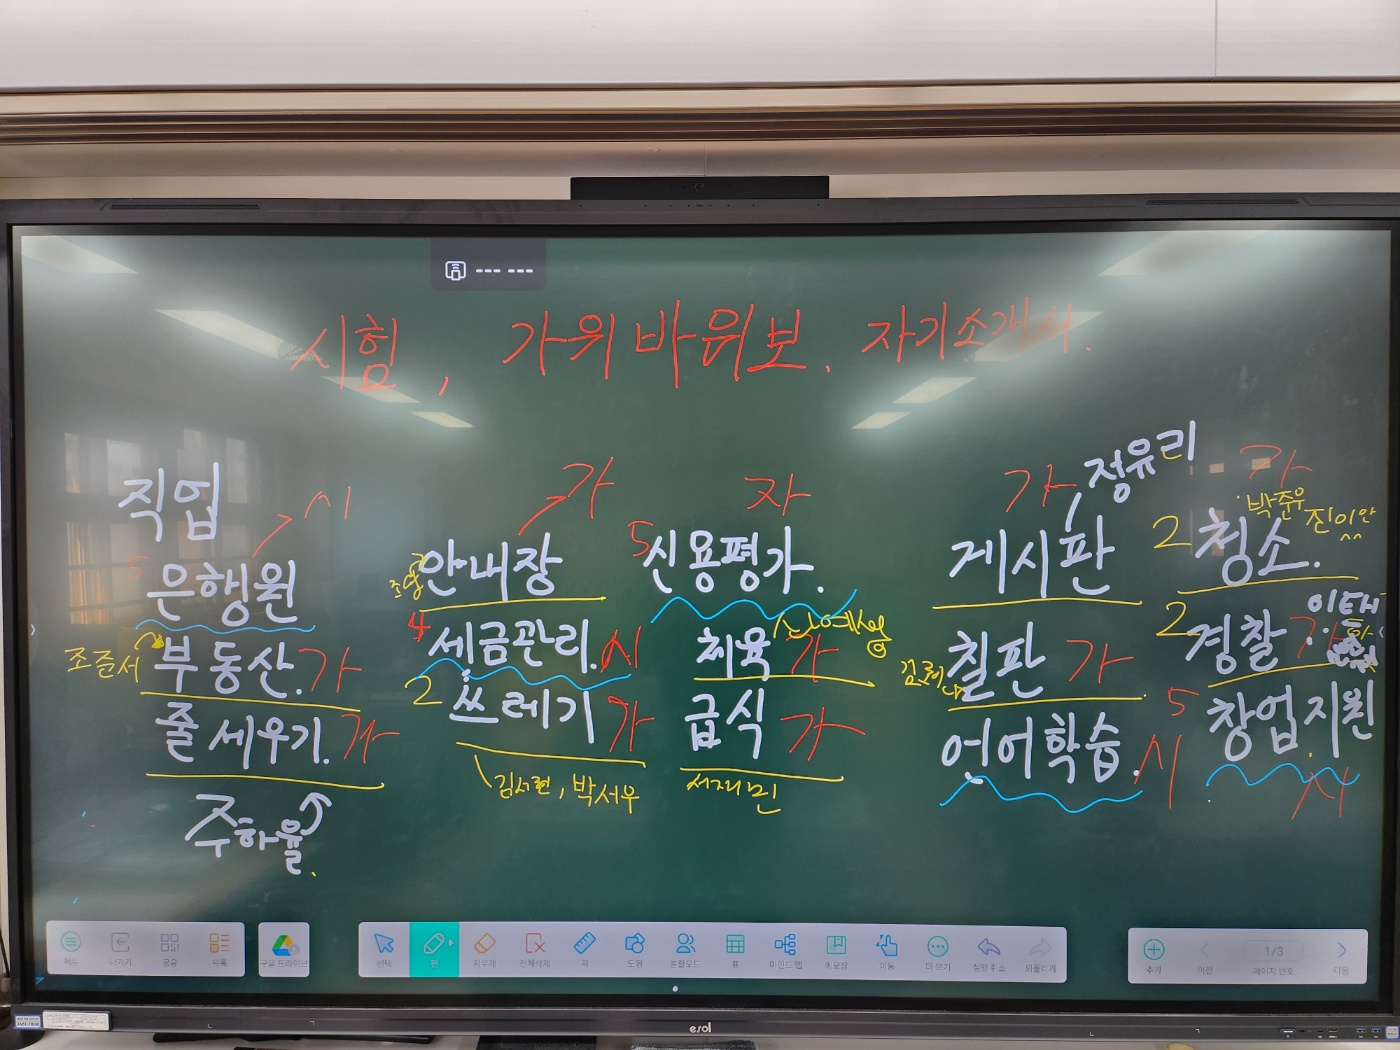 시험, 가위바위보. 자기소개서.
직업
시
5 은행원
조준서
부동산. 가
줄세우기. 가
주하율.
가
안내장
4 세금관리. 시
2 쓰레기 가
김서현, 박서우
자
5 신용평가.
체육 가
나예성
급식 가
서재민
가 정유리
게시판
칠판 가
언어학습. 시
가
박준우 진이안
2 청소.
2 경찰 가
5 창업지원
메뉴 나가기 공유 목록
구글 드라이브
선택 펜 지우개 전체삭제 자 도형 분할모드 표 마인드 맵 메모장 이동 더 보기 실행 취소 되돌리기
추가 이전 1/3 페이지 번호 다음
esol